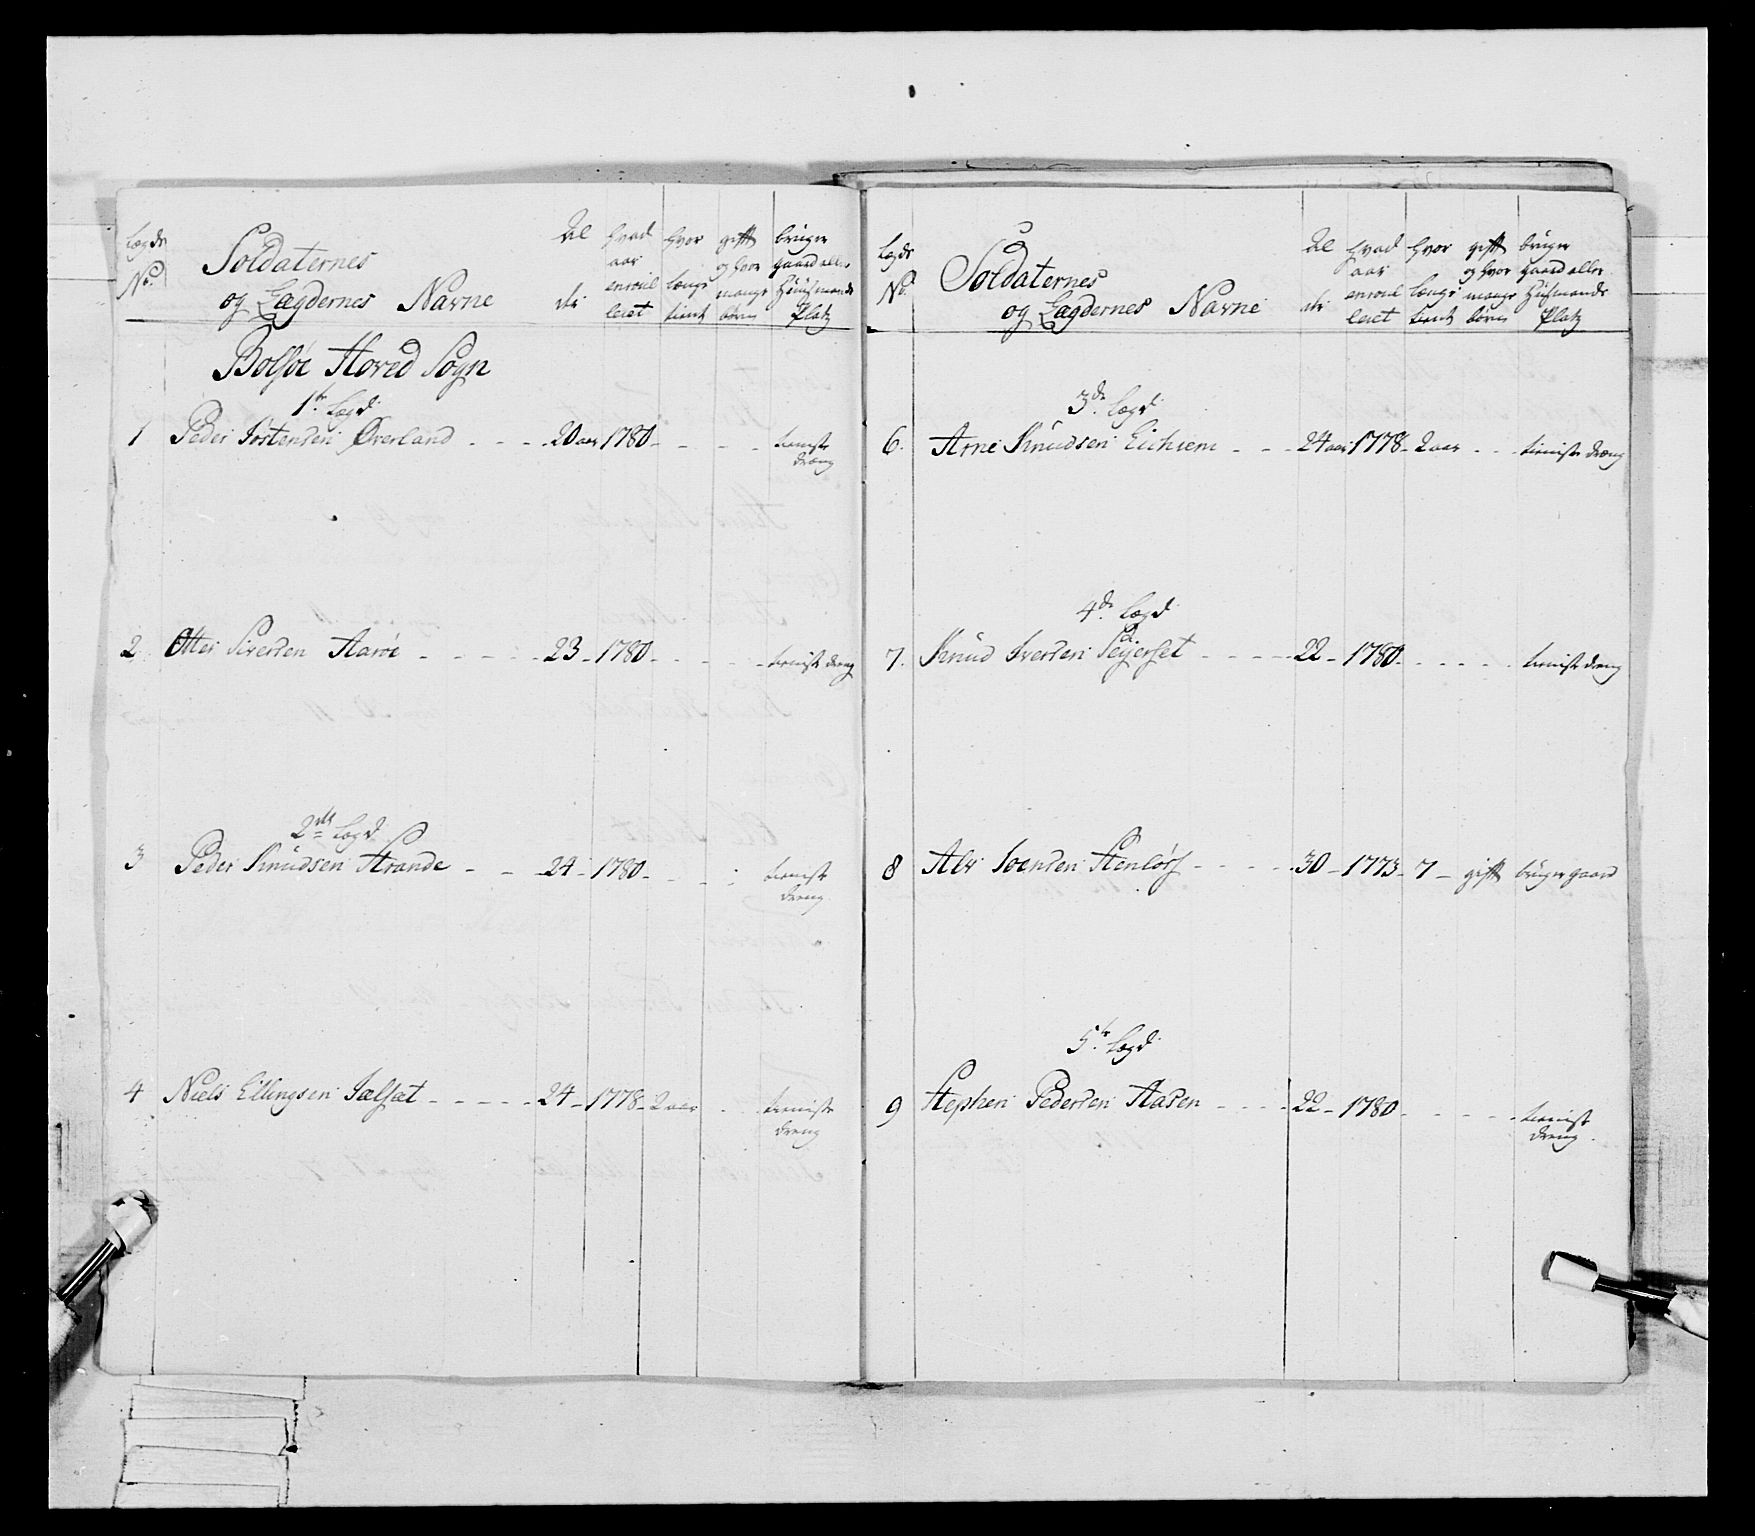 Lægds No. Soldaternes og Lægdernes Navne Al der hvad aar enroulleret hvor længe tient gift og hvor mange børn bruger gaard eller Huusmands Platz
Bolsöe Hoved Sogn
1te Lægd
1 Peder Iostensen Øverland - - - 20 aar 1780 - - - - tieniste dræng
2 Otter Siversen Aarøe - - - - - 23 - 1780 - - - - tieniste dreng
2det Lægd
3 Peder Knudsen Strande - - - 24 - 1780 - - - - tieniste dreng
4 Niels Ellingsen Iælsæt - - - - - 24 - 1778 - 2 aar - - tieniste dreng
Lægds No. Soldaternes og Lægdernes Navne Al der hvad aar enroulleret hvor længe tient gift og hvor mange børn bruger gaard eller Huusmands Platz
3de Lægd
6. Arne Knudsen Eichrem - - - 24 aar 1778 - 2 aar - - tieniste dræng
4de Lægd
7. Knud Iversen Seijerset - - - - 22 - 1780 - - - - - tieniste dreng
8 Alv Ioensen Stenløs - - - - 30 - 1773 - 7 - gift bruger gaard
5te Lægd
9 Stephen Pedersen Aasen - - - - 22 - 1780 - - - - - tieniste dreng